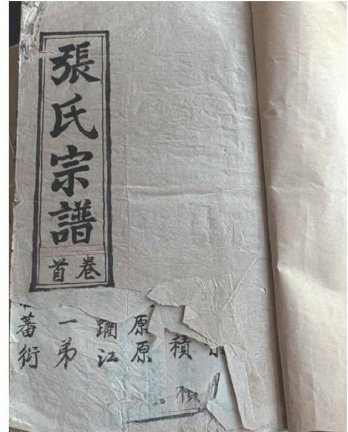 張氏宗譜
卷首
原原
江
一弟
蕃衍
積